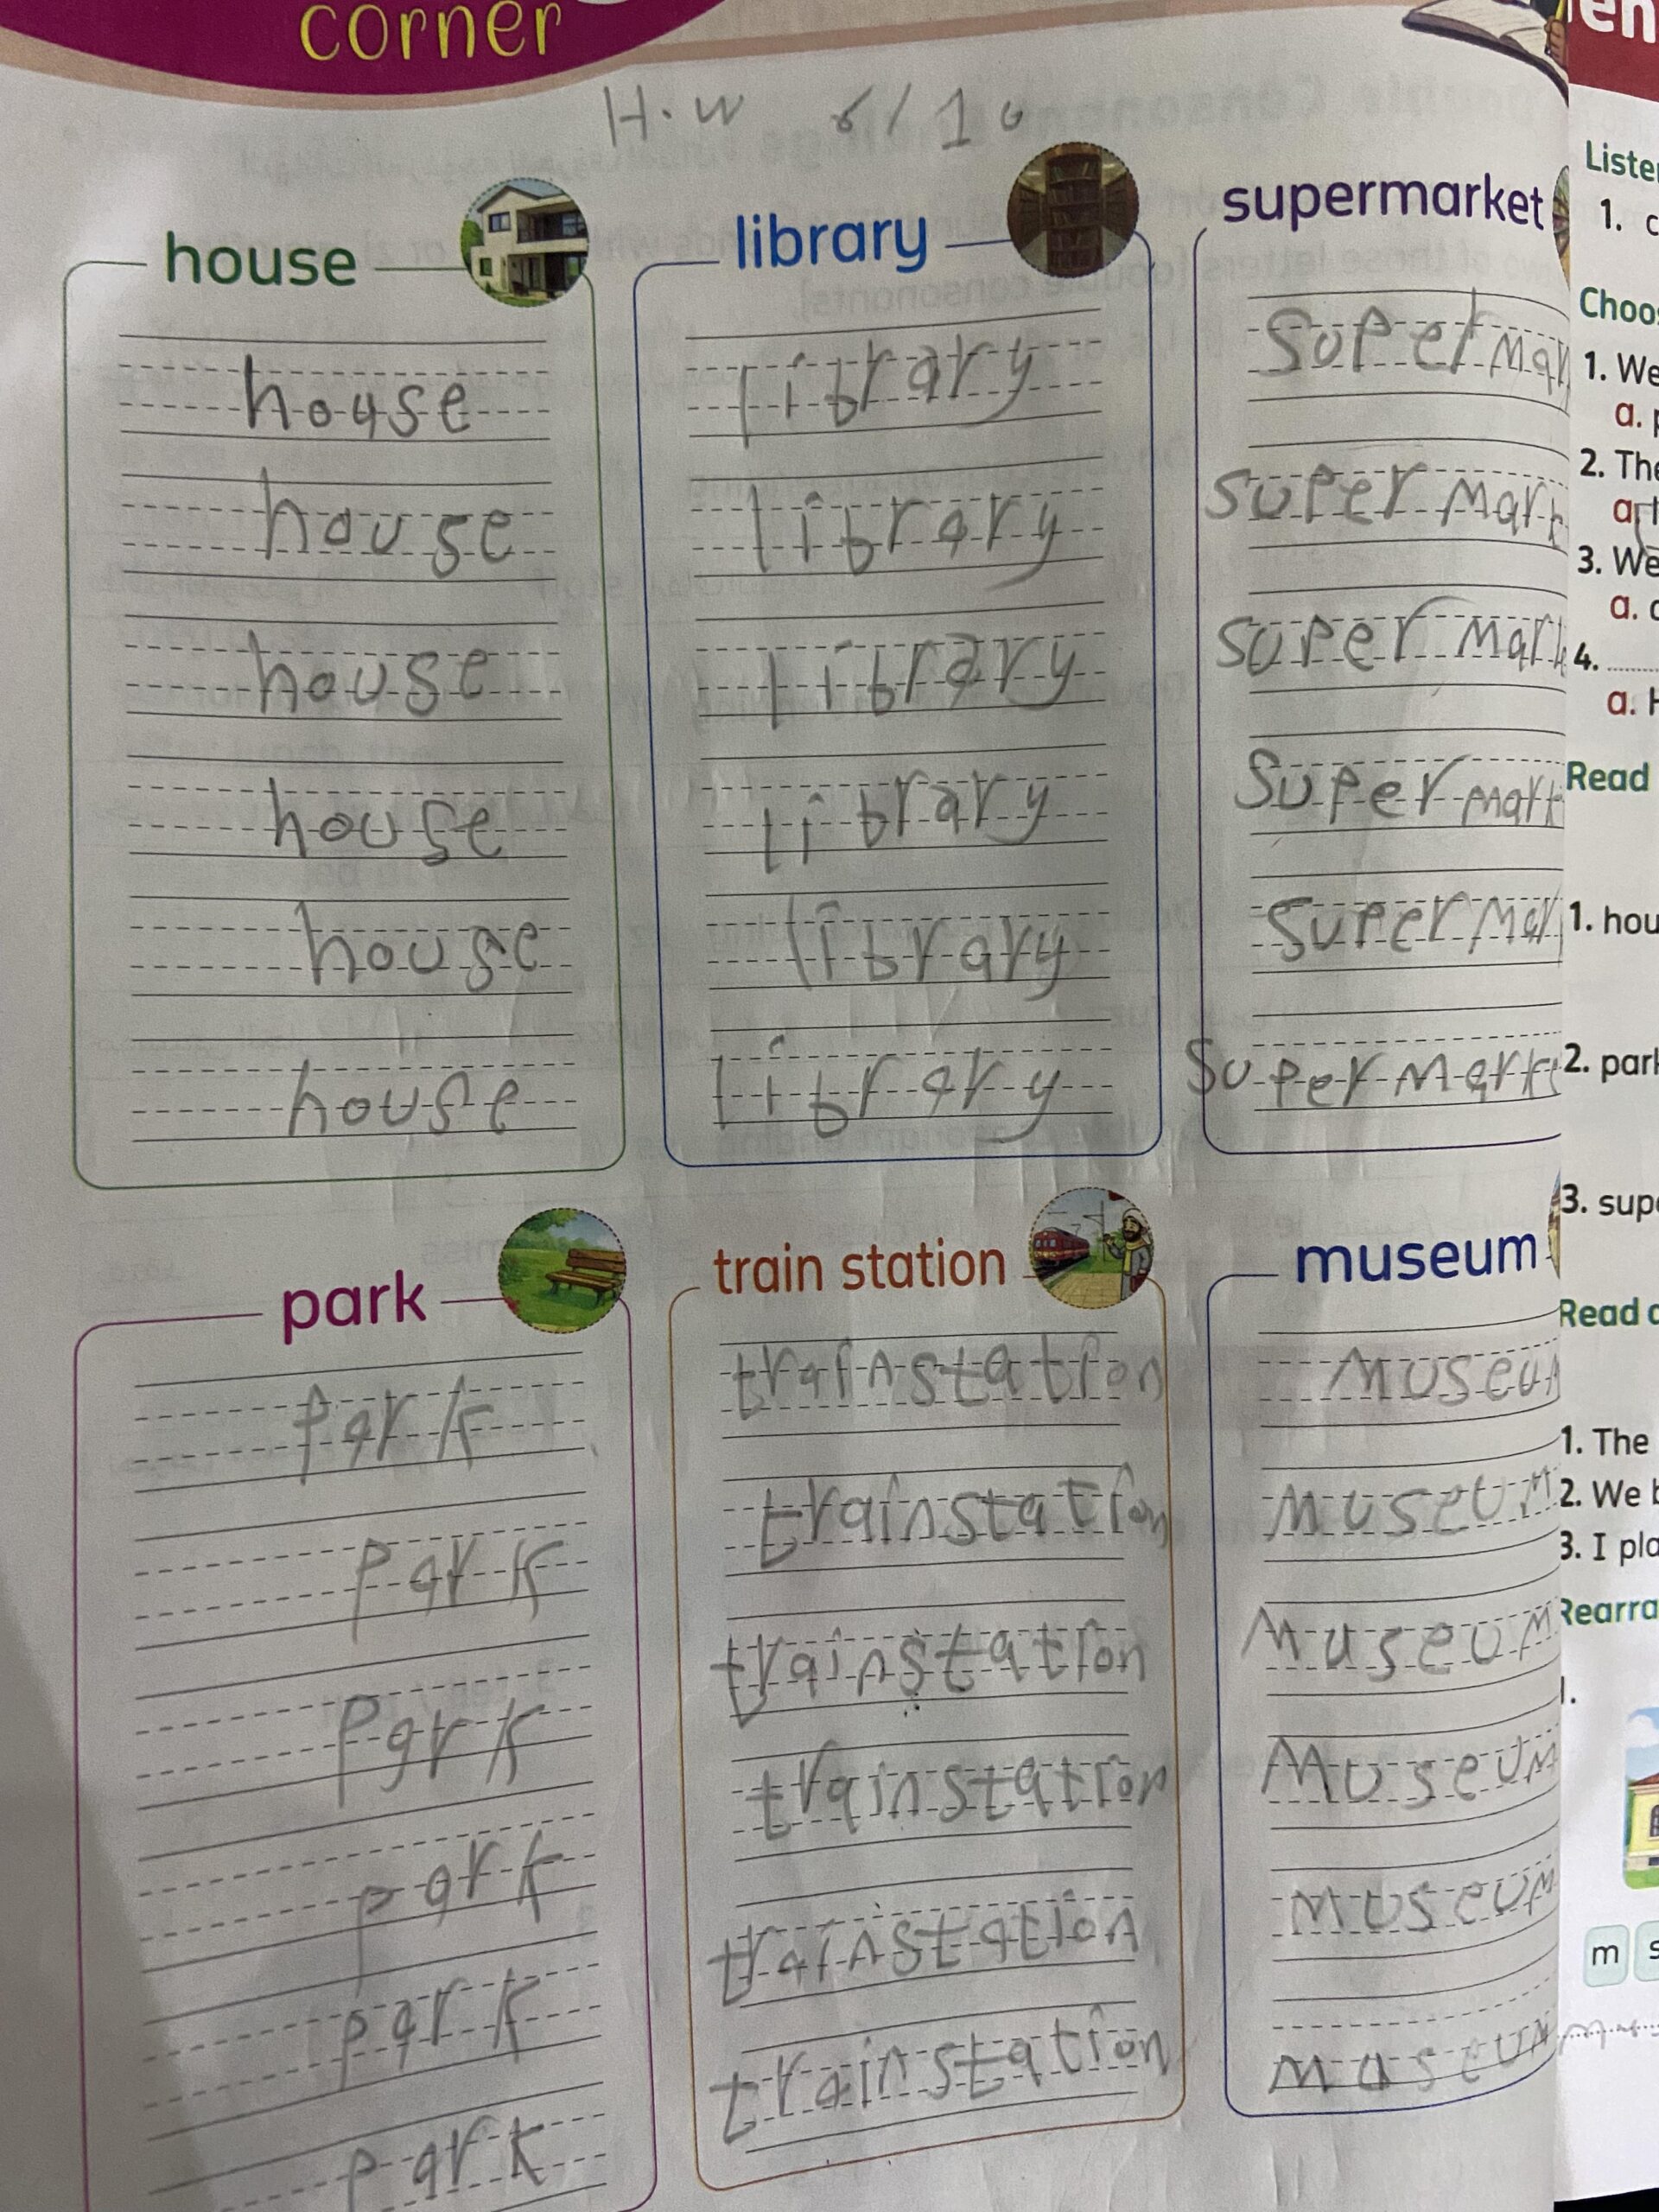 corner
H.W 6/10
house
house
house
house
house
house
house
library
library
library
library
library
library
library
supermarket
Supermar
supermark
supermark
supermark
supermar
supermark
park
park
park
park
park
park
park
train station
trainstation
trainstation
trainstation
trainstation
trainstation
trainstation
museum
museum
museum
museum
museum
museum
museum
en
Liste
1. c
Choo
1. We
a. p
2. The
a.
3. We
a.
4.
a. H
Read
1. hou
2. park
3. supe
Read
1. The
2. We b
3. I pla
Rearra
1.
m s